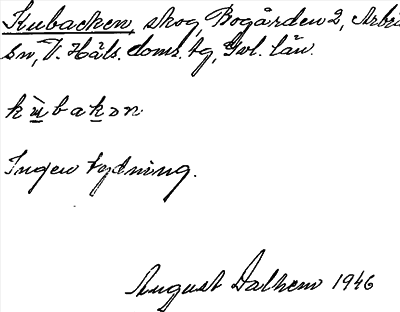 Kubacken, skog, Bogården 2, Arbrå
sn, V. Häls. doms. tg, Gvl. län.
kùbakən
Ingen tydning.
August Dalhem 1946